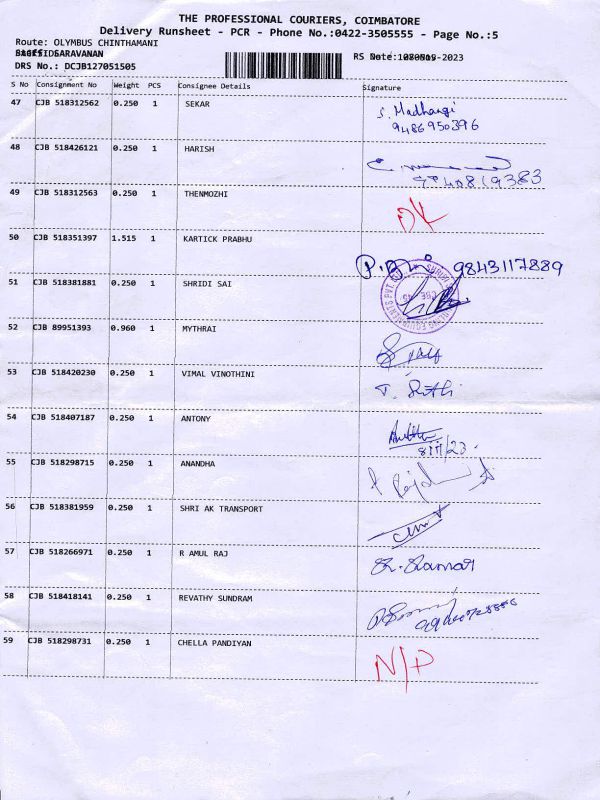 THE PROFESSIONAL COURIERS, COIMBATORE
Delivery Runsheet - PCR - Phone No.:0422-3505555 - Page No.:5
Route: OLYMBUS CHINTHAMANI
SARAVANAN
RS Date: -2023
DRS No.: DCJB127051505
S No Consignment No Weight PCS Consignee Details Signature
47 CJB 518312562 0.250 1 SEKAR S. Madhangi
9486950396
48 CJB 518426121 0.250 1 HARISH
49 CJB 518312563 0.250 1 THENMOZHI DK
50 CJB 518351397 1.515 1 KARTICK PRABHU
9843117889
51 CJB 518381881 0.250 1 SHRIDI SAI
52 CJB 89951393 0.960 1 MYTHRAI
53 CJB 518420230 0.250 1 VIMAL VINOTHINI
54 CJB 518407187 0.250 1 ANTONY
8/11/23
55 CJB 518298715 0.250 1 ANANDHA
56 CJB 518381959 0.250 1 SHRI AK TRANSPORT
57 CJB 518266971 0.250 1 R AMUL RAJ
58 CJB 518418141 0.250 1 REVATHY SUNDRAM
59 CJB 518298731 0.250 1 CHELLA PANDIYAN
N/P